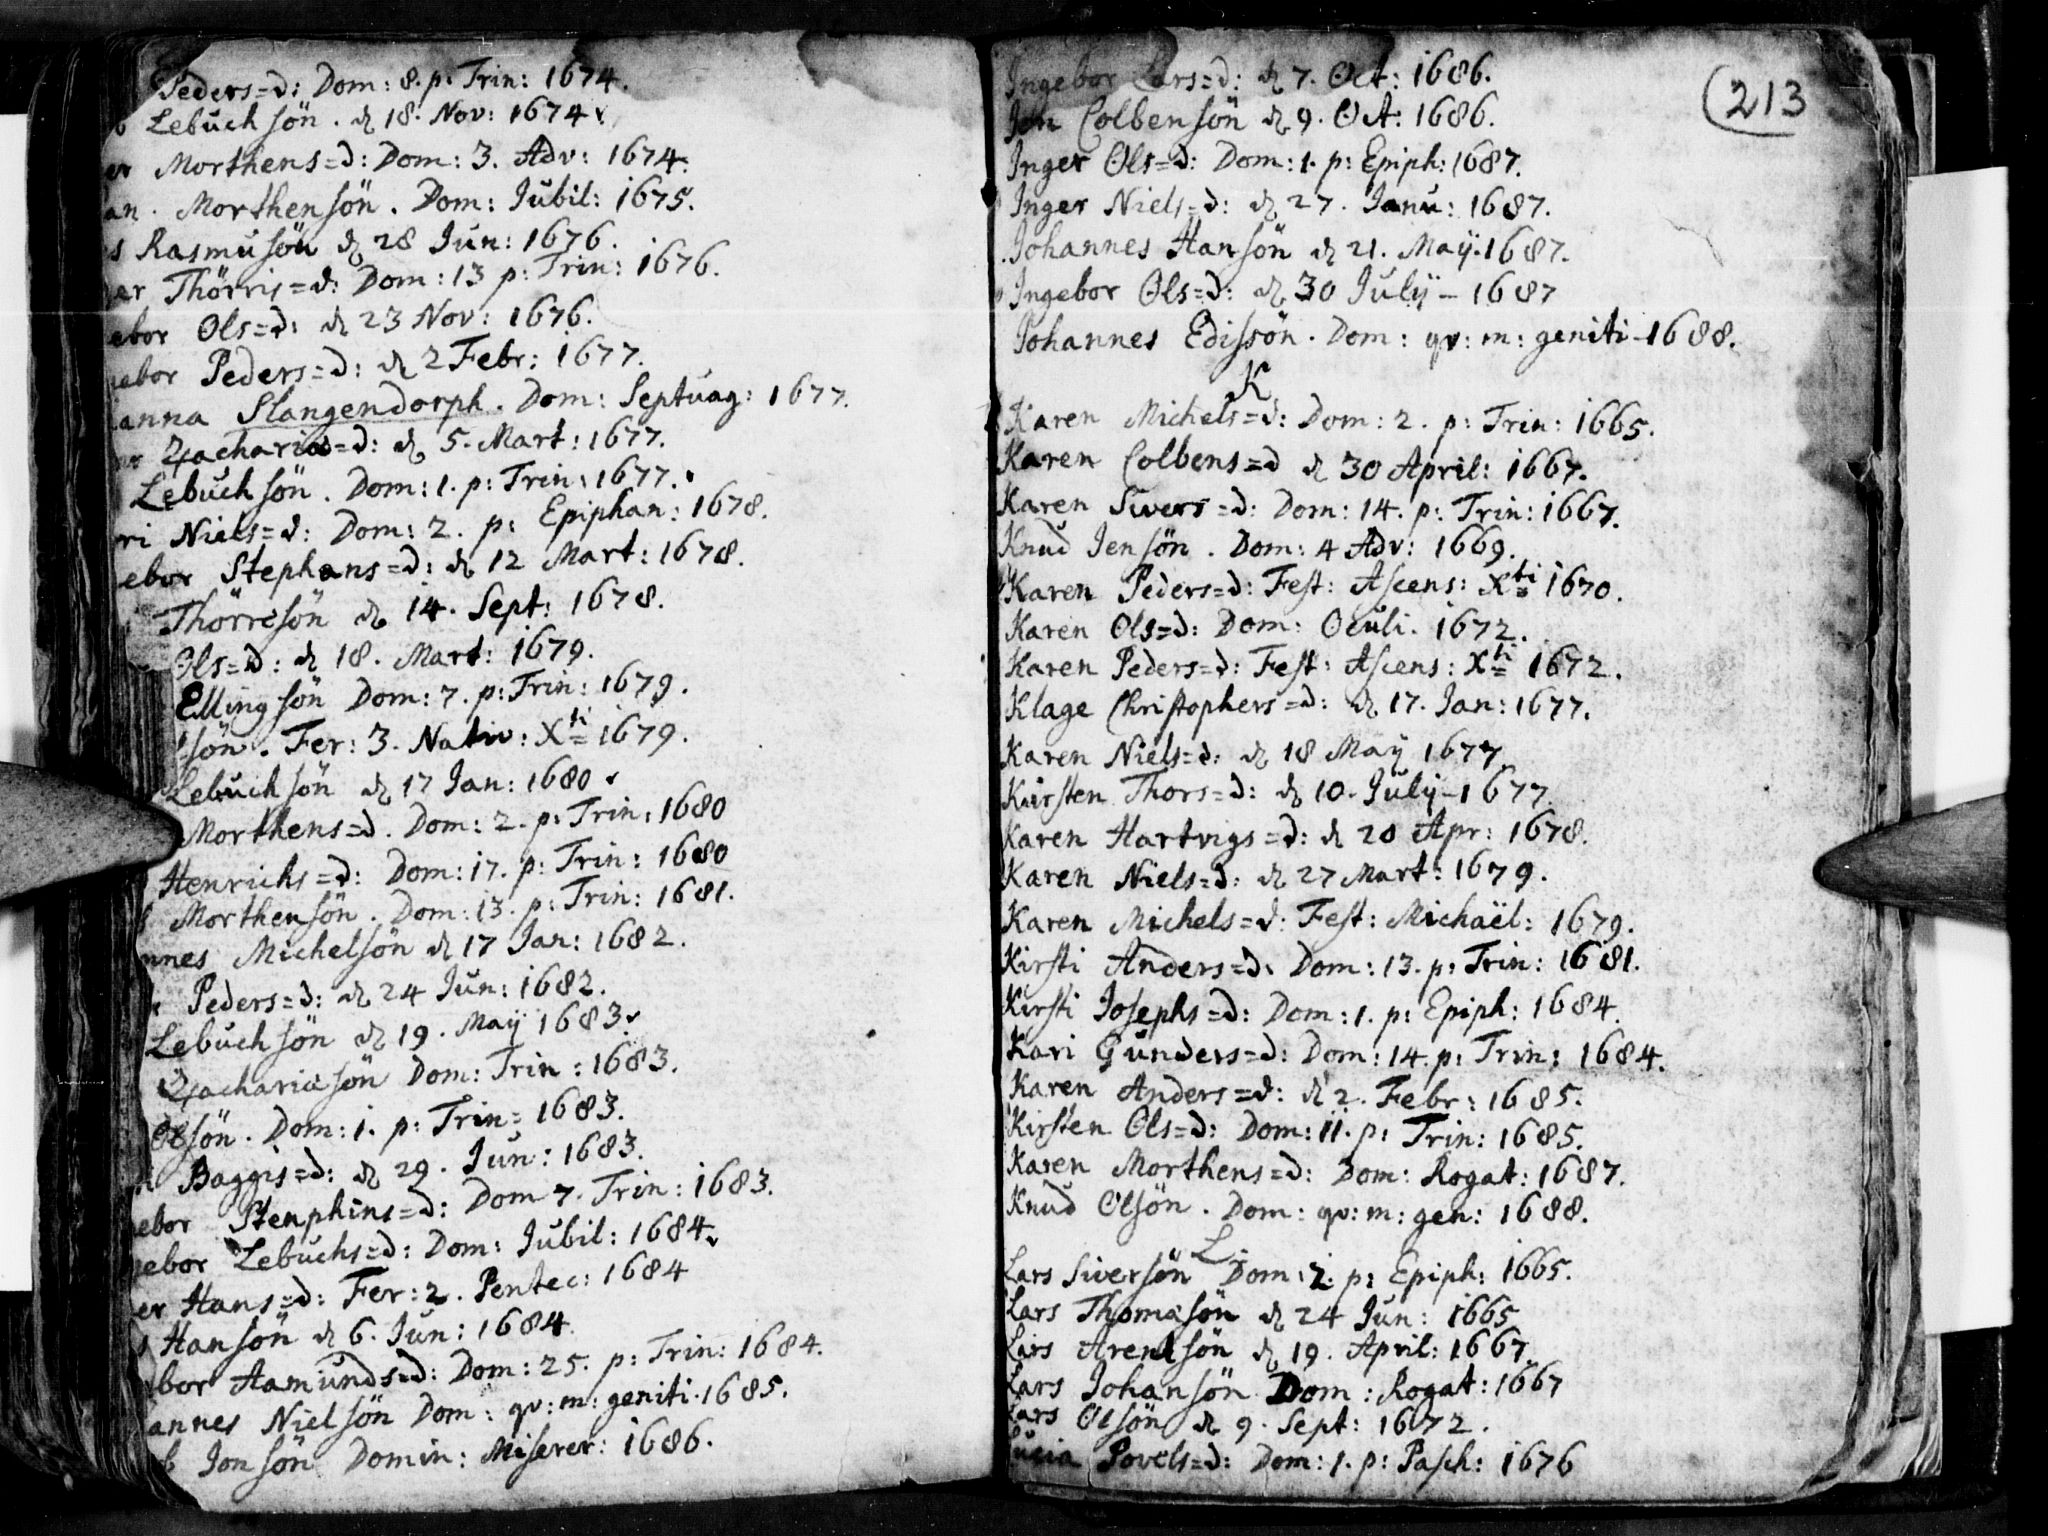 Peders=d: Dom: 8. p: Trin: 1674.
Lebuch sön. d 18. Nov: 1674
Morthens=d: Dom: 3. Adv: 1674.
an. Morthensön. Dom: Jubil: 1675.
s Rasmusön d 28 Jun: 1676.
er Thörris=d: Dom: 13 p: Trin: 1676.
ebor Ols=d: d 23 Nov: 1676.
ebor Peders=d: d 2 Febr: 1677.
anna Slangendorph. Dom: Septuag: 1677.
Zacharia=d: d 5. Mart: 1677.
Lebuch sön. Dom: 1. p: Trin: 1677.
ri Niels=d: Dom: 2. p: Epiphan: 1678.
ebor Stephans=d: d 12 Mart: 1678.
Thörresön d 14. Sept: 1678.
Ols=d: d 18. Mart: 1679.
Elling sön Dom: 7. p: Trin: 1679.
sön. Fer: 3. Nativ: Xti 1679.
Lebuch sön d 17 Jan: 1680
Morthens=d. Dom: 2. p: Trin: 1680
Henrichs=d: Dom: 17. p: Trin: 1680
Morthensön. Dom: 13. p: Trin: 1681.
nnes Michelsön d 17 Jan: 1682.
Peders=d: d 24 Jun: 1682.
Lebuch sön d 19. Maÿ 1683.
Zachariasön Dom: Trin: 1683.
Olsön. Dom: 1. p: Trin: 1683.
Baggis=d: d 29. Jun: 1683.
ebor Stenphins=d: Dom 7. Trin: 1683.
gebor Lebuchs=d: Dom: Jubil: 1684
er Hans=d: Fer: 2. Pentec: 1684
Hansön d 6. Jun: 1684.
bor Aamunds=d: Dom: 25. p: Trin: 1684.
annes Nielsön Dom: qv: m: geniti. 1685.
Jonsön Domin: Miserer: 1686.
213
Ingebor Lars=d: d 7. Oct: 1686.
Jon Colbensön d 9. Oct: 1686.
Inger Ols=d: Dom: 1. p: Epiph: 1687.
Inger Niels=d: d 27. Janu: 1687.
Johannes Hansön d 21. Maÿ. 1687.
Ingebor Ols=d: d 30 Julÿ - 1687
Johannes Edissön. Dom: qv: m: geniti - 1688.
K
Karen Michels=d: Dom: 2. p: Trin: 1665.
Karen Colbens=d d 30 April: 1667.
Karen Sivers=d: Dom: 14. p: Trin: 1667.
Knud Jensön. Dom: 4 Adv: 1669.
Karen Peders=d: Fest: Ascens: Xti 1670.
Karen Ols=d: Dom: Oculi. 1672.
Karen Peders=d: Fest: Ascens: Xti 1672.
Klage Christophers=d: d 17. Jan: 1677.
Karen Niels=d: d 18 Maÿ 1677
Kirsten Thors=d: d 10. Julÿ - 1677
Karen Hartvigs=d: d 20 Apr: 1678.
Karen Niels=d: d 27 Mart: 1679.
Karen Michels=d: Fest: Michaël: 1679.
Kirsti Anders=d: Dom: 13. p: Trin: 1681.
Kirsti Josephs=d: Dom: 1. p: Epiph: 1684.
Kari Gunders=d: Dom: 14. p: Trin: 1684.
Karen Anders=d: d 2. Febr: 1685.
Kirsten Ols=d: Dom: 11. p: Trin: 1685.
Karen Morthens=d: Dom: Rogat: 1687.
Knud Olsön. Dom: qv: m: gen: 1688.
L.
Lars Siversön Dom: 2. p: Epiph: 1665.
Lars Thomasön d 24 Jun: 1665
Lars Arentsön d 19. April: 1667.
Lars Johansön Dom: Rogat: 1667
Lars Olsön d 9. Sept: 1672.
Lucia Povels=d: Dom: 1. p: Pasch: 1676